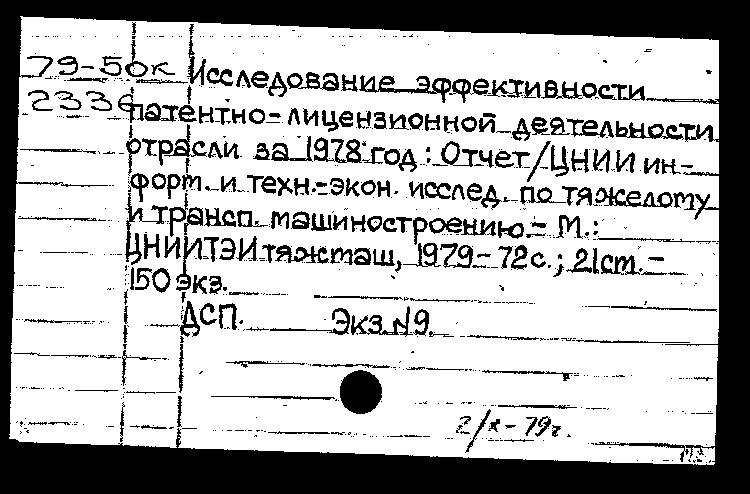 79-50к Исследование эффективности
2336 патентно-лицензионной деятельности
отрасли за 1978 год: Отчет/ЦНИИ ин-
форм. и техн.-экон. исслед. по тяжелому
и трансп. машиностроению.- М.:
ЦНИИТЭИтяжмаш, 1979- 72с.; 21см.-
150 экз.
ДСП. Экз.N9.
2/х-79г.